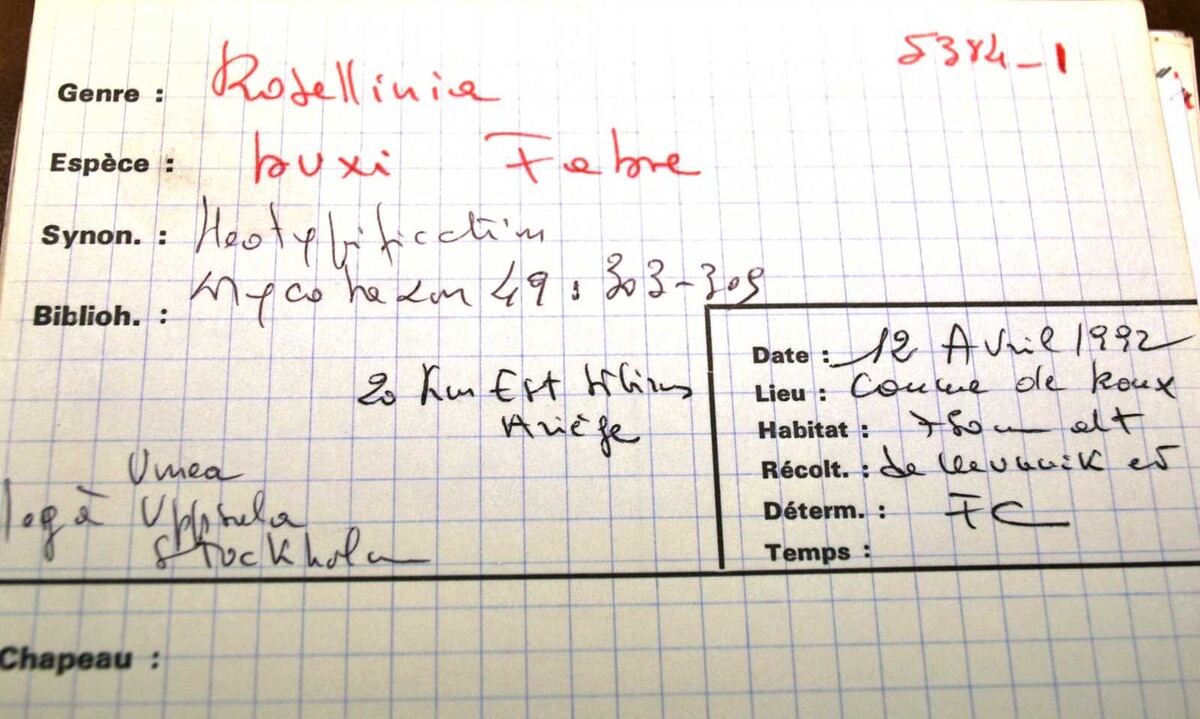 5384-1
Genre : Rosellinia
Espèce : buxi Fabre
Synon. : Neotypification
Mycotaxon 49 : 303-309
Biblioh. :
Date : 12 Avril 1992
20 Km Est
Ariège
Lieu : de Roux
Habitat : 750 m alt
Umea
Récolt. :
leg à Uppsala
Déterm. : FC
Stockholm
Temps :
Chapeau :